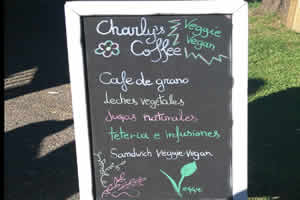 Charly's
Coffee
Veggie
Vegan
Cafe de grano
Leches vegetales
Jugos naturales
teteria e infusiones
Samdwich Veggie-Vegan
Veggie